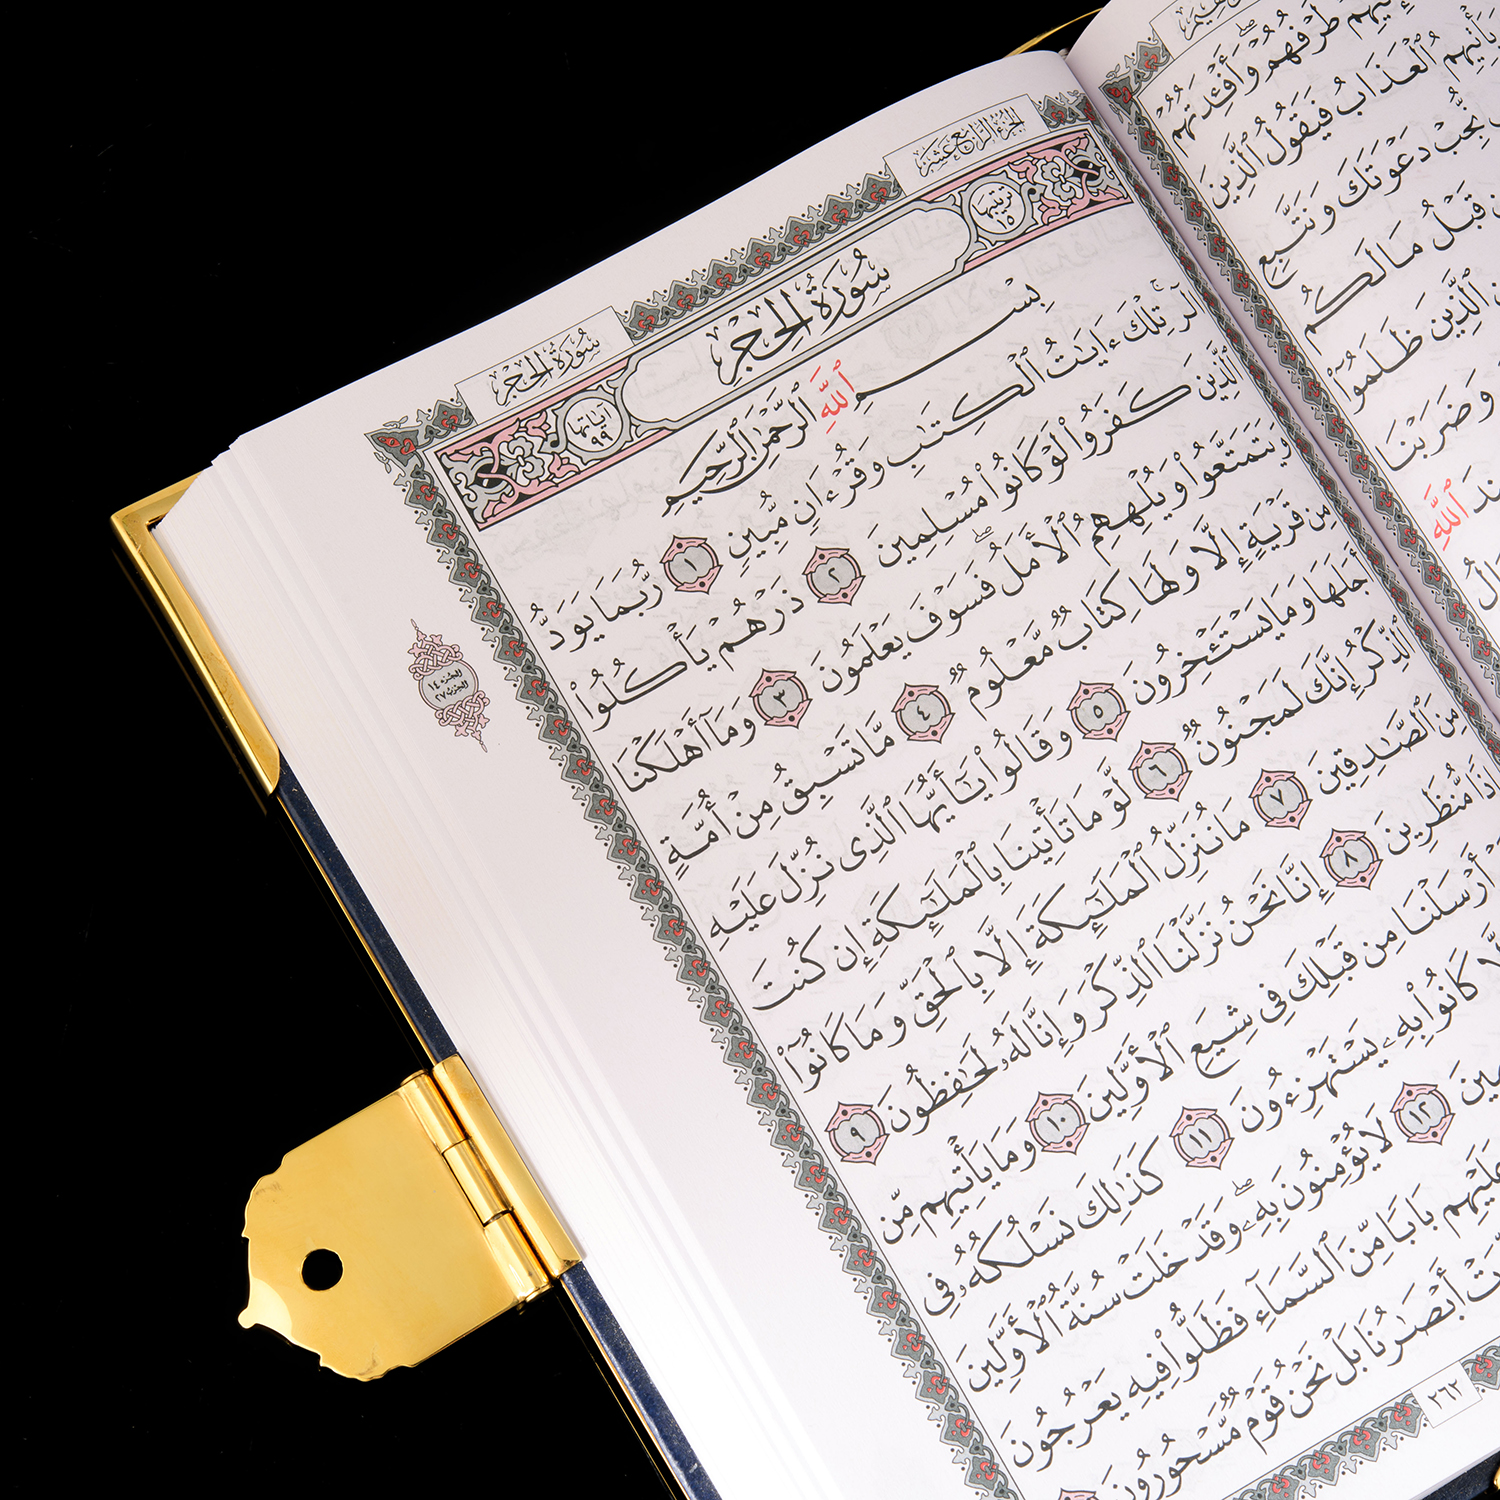 الجزء الرابع عشر
سُورَةُ الحِجْرِ
ترتيبها ١٥
سُورَةُ الحِجْرِ
آياتها ٩٩
بِسْمِ ٱللَّهِ ٱلرَّحْمَٰنِ ٱلرَّحِيمِ
الٓرۚ تِلْكَ ءَايَٰتُ ٱلْكِتَٰبِ وَقُرْءَانٍ مُّبِينٍ ١ رُّبَمَا يَوَدُّ
ٱلَّذِينَ كَفَرُوا۟ لَوْ كَانُوا۟ مُسْلِمِينَ ٢ ذَرْهُمْ يَأْكُلُوا۟
وَيَتَمَتَّعُوا۟ وَيُلْهِهِمُ ٱلْأَمَلُۖ فَسَوْفَ يَعْلَمُونَ ٣ وَمَآ أَهْلَكْنَا
مِن قَرْيَةٍ إِلَّا وَلَهَا كِتَابٌ مَّعْلُومٌ ٤ مَّا تَسْبِقُ مِنْ أُمَّةٍ
أَجَلَهَا وَمَا يَسْتَـْٔخِرُونَ ٥ وَقَالُوا۟ يَٰٓأَيُّهَا ٱلَّذِى نُزِّلَ عَلَيْهِ
ٱلذِّكْرُ إِنَّكَ لَمَجْنُونٌ ٦ لَّوْ مَا تَأْتِينَا بِٱلْمَلَٰٓئِكَةِ إِن كُنتَ
مِنَ ٱلصَّٰدِقِينَ ٧ مَا نُنَزِّلُ ٱلْمَلَٰٓئِكَةَ إِلَّا بِٱلْحَقِّ وَمَا كَانُوٓا۟
إِذًا مُّنظَرِينَ ٨ إِنَّا نَحْنُ نَزَّلْنَا ٱلذِّكْرَ وَإِنَّا لَهُۥ لَحَٰفِظُونَ ٩
أَرْسَلْنَا مِن قَبْلِكَ فِى شِيَعِ ٱلْأَوَّلِينَ ١٠ وَمَا يَأْتِيهِم مِّن
إِلَّا كَانُوا۟ بِهِۦ يَسْتَهْزِءُونَ ١١ كَذَٰلِكَ نَسْلُكُهُۥ فِى
١٢ لَا يُؤْمِنُونَ بِهِۦۖ وَقَدْ خَلَتْ سُنَّةُ ٱلْأَوَّلِينَ
عَلَيْهِم بَابًا مِّنَ ٱلسَّمَآءِ فَظَلُّوا۟ فِيهِ يَعْرُجُونَ
أَبْصَٰرُنَا بَلْ نَحْنُ قَوْمٌ مَّسْحُورُونَ
٢٦٢
الجزء ١٤
الحزب ٢٧
طَرْفُهُمْۖ وَأَفْـِٔدَتُهُمْ
يَأْتِيهِمُ ٱلْعَذَابُ فَيَقُولُ ٱلَّذِينَ
نُّجِبْ دَعْوَتَكَ وَنَتَّبِعِ
قَبْلُ مَا لَكُم
ٱلَّذِينَ ظَلَمُوٓا۟
وَضَرَبْنَا
ٱللَّهِ